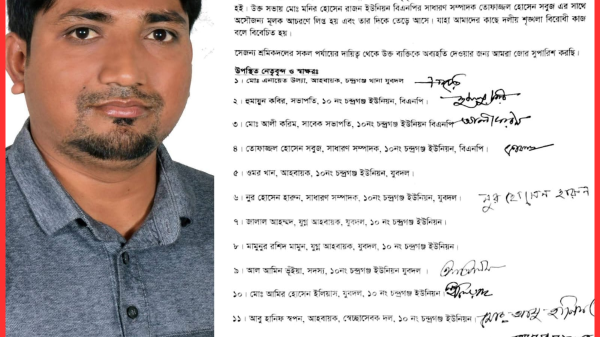 হই। উক্ত সভায় মোঃ মনির হোসেন রাজন ইউনিয়ন বিএনপির সাধারণ সম্পাদক তোফাজ্জল হোসেন সবুজ এর সাথে
অসৌজন্য মূলক আচরণে লিপ্ত হয় এবং তার দিকে তেড়ে আসে। যাহা আমাদের কাছে দলীয় শৃঙ্খলা বিরোধী কাজ
বলে বিবেচিত হয়।
সেজন্য শ্রমিকদলের সকল পর্যায়ের দায়িত্ব থেকে উক্ত ব্যক্তিকে অব্যহতি দেওয়ার জন্য আমরা জোর সুপারিশ করছি।
উপস্থিত নেতৃবৃন্দ ও স্বাক্ষরঃ
১। মোঃ এনায়েত উল্যা, আহবায়ক, চন্দ্রগঞ্জ থানা যুবদল
২। হুমায়ুন কবির, সভাপতি, ১০ নং চন্দ্রগঞ্জ ইউনিয়ন, বিএনপি।
৩। মোঃ আলী করিম, সাবেক সভাপতি, ১০নং চন্দ্রগঞ্জ ইউনিয়ন বিএনপি
৪। তোফাজ্জল হোসেন সবুজ, সাধারণ সম্পাদক, ১০নং চন্দ্রগঞ্জ ইউনিয়ন, বিএনপি।
৫। ওমর খান, আহবায়ক, ১০নং চন্দ্রগঞ্জ ইউনিয়ন, যুবদল।
৬। নুর হোসেন হারুন, সাধারণ সম্পাদক, ১০নং চন্দ্রগঞ্জ ইউনিয়ন, যুবদল। নুর হোসেন হারুন
৭। জালাল আহম্মদ, যুগ্ম আহবায়ক, যুবদল, ১০ নং চন্দ্রগঞ্জ ইউনিয়ন।
৮। মামুনুর রশিদ মামুন, যুগ্ম আহবায়ক, যুবদল, ১০ নং চন্দ্রগঞ্জ ইউনিয়ন।
৯। আল আমিন ভূঁইয়া, সদস্য, ১০নং চন্দ্রগঞ্জ ইউনিয়ন যুবদল।
১০। মোঃ আমির হোসেন ইলিয়াস, যুবদল, ১০ নং চন্দ্রগঞ্জ ইউনিয়ন।
১১। আবু হানিফ স্বপন, আহবায়ক, স্বেচ্ছাসেবক দল, ১০ নং চন্দ্রগঞ্জ ইউনিয়ন।